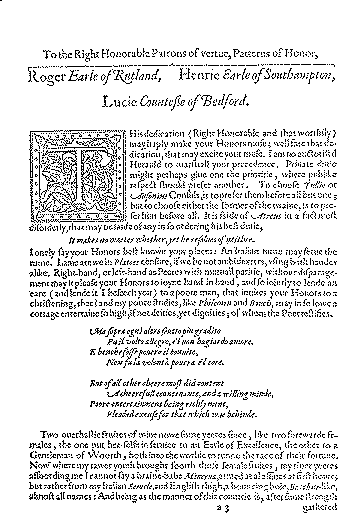 To the Right Honorable Patrons of vertue, Patterns of Honor,
Roger Earle of Rutland, Henrie Earle of Southampton,
Lucie Countesse of Bedford.
His dedication (Right Honorable and that worthily)
may haply make your Honors muse; well fare that de-
dication, that may excite your muse. I am no auctorised
Herauld to marshall your precedence. Private dutie
might perhaps give one the prioritie, where publike
respect should prefer another. To choose Tullie or
Ausonius Consuls, is to prefer them before all but one;
but to choose either the former of the twaine, is to pre-
fer him before all. It is saide of Atreus in a fact most
disorderly, that may be saide of any in so ordering his best dutie,
It makes no matter whether, yet he resolves of neither.
I onely say your Honors best knowe your places: An Italian turne may serve the
turne. Lame are we in Platoes censure, if we be not ambidexters, using both handes
alike. Right-hand, or left-hand as Peeres with mutuall paritie, without disparage-
ment may it please your Honors to joyne hand in hand, and so joyntly to lende an
eare (and lende it I beseech you) to a poore man, that invites your Honors to a
christening, that I and my poore studies, like Philemon and Baucis, may in so lowe a
cottage entertaine so high, if not deities, yet dignities; of whom the Poet testifies.
Ma sopra ogni altro frutto piu gradito
Fu il volto allegro, e'l non bugiardo amore.
E benche fosse povero il convito,
Non fu la volontà povera e'l core.
But of all other cheere most did content
A cheerefull countenance, and a willing minde,
Poore entertainment being richly ment,
Pleaded excuse for that which was behinde.
Two overthwarte fruites of mine nowe some yeeres since, like two forewarde fe-
males, the one put her selfe in service to an Earle of Excellence, the other to a
Gentleman of Woorth, both into the worlde to runne the race of their fortune.
Now where my rawer youth brought foorth those female fruites, my riper yeeres
affoording me I cannot say a braine-babe Minerva, armed as all assaies at first houre;
but rather from my Italian Semele, and English thigh, a bouncing boie, Bacchus-like,
almost all named: And being as the manner of this countrie is, after some strength
a 3 gathered